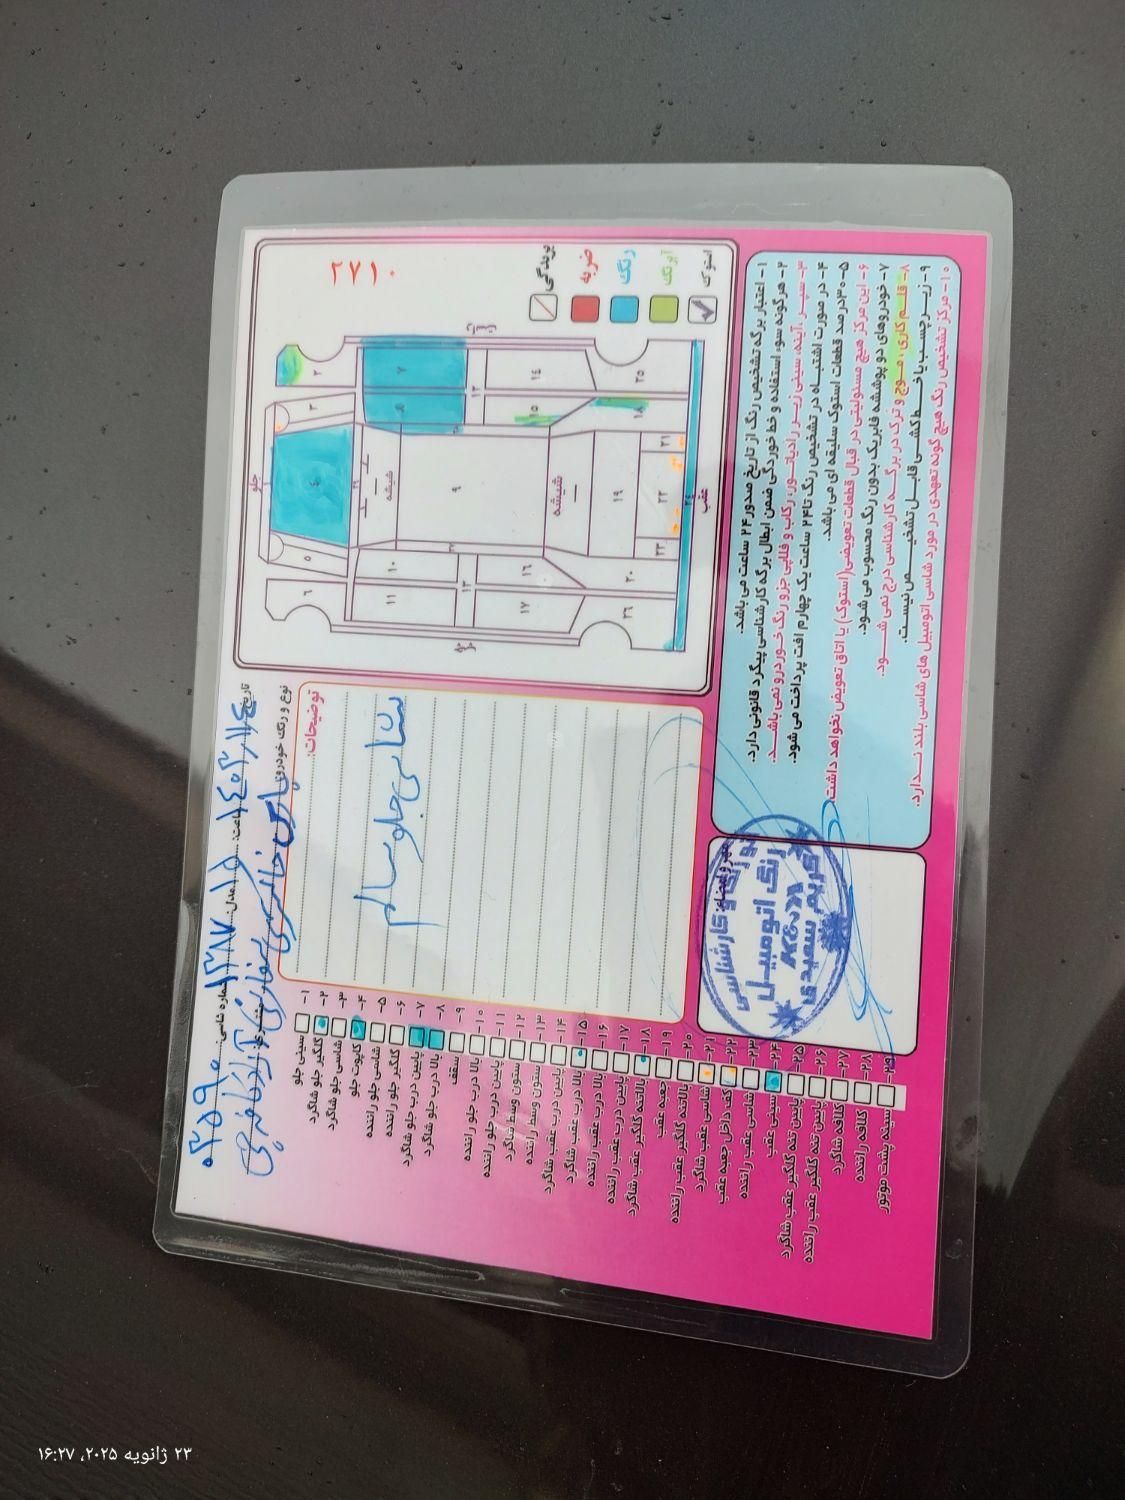 ۲۷۱۰
بریدگی
ضربه
رنگ
آبرنگ
استوک
جلو
عقب
شیشه
شیشه
۱
۲
۳
۴
۵
۶
۷
۸
۹
۱۰
۱۱
۱۲
۱۳
۱۴
۱۵
۱۶
۱۷
۱۸
۱۹
۲۰
۲۱
۲۲
۲۳
۲۴
۲۵
۲۶
۲۹
۱- اعتبار برگه تشخیص رنگ از تاریخ صدور ۲۴ ساعت می باشد.
۲- هرگونه سوء استفاده و خط خوردگی ضمن ابطال برگه کارشناسی پیگرد قانونی دارد.
۳- سپر، آینه، سینی زیر رادیاتور، رکاب و قلاپی جزو رنگ خودرو نمی باشد.
۴- در صورت اشتباه در تشخیص رنگ تا ۲۴ ساعت یک چهارم افت پرداخت می شود.
۵- ۳۰درصد قطعات استوک سلیقه ای می باشد.
۶- این مرکز هیچ مسئولیتی در قبال قطعات تعویضی(استوک) یا اتاق تعویض نخواهد داشت.
۷- خودروهای دو پوششه فابریک بدون رنگ محسوب می شود.
۸- قلم کاری، موج و ترک در برگه کارشناسی درج نمی شود.
۹- زیر چسب یا خط کشی قابل تشخیص نیست.
۱۰- مرکز تشخیص رنگ هیچ گونه تعهدی در مورد شاسی اتومبیل های شاسی بلند ندارد.
تاریخ: ۱۴۰۳/۱۱/۴ ساعت: ۱۵ مدل: ۱۳۸۷ شماره شاسی: ۰۲۵۹۰
نوع و رنگ خودرو: پارس خاکستری سفارش آزاد
توضیحات:
شاسی جلو سالم
رنگ و کارشناسی
رنگ اتومبیل
کریم سعیدی
۱- سینی جلو
۲- گلگیر جلو شاگرد
۳- شاسی جلو شاگرد
۴- کاپوت جلو
۵- شاسی جلو راننده
۶- گلگیر جلو راننده
۷- پایین درب جلو شاگرد
۸- بالا درب جلو شاگرد
۹- سقف
۱۰- بالا درب جلو راننده
۱۱- پایین درب جلو راننده
۱۲- ستون وسط شاگرد
۱۳- ستون وسط راننده
۱۴- پایین درب عقب شاگرد
۱۵- بالا درب عقب شاگرد
۱۶- بالا درب عقب راننده
۱۷- پایین درب عقب راننده
۱۸- بالاتنه گلگیر عقب شاگرد
۱۹- جعبه عقب
۲۰- بالاتنه گلگیر عقب راننده
۲۱- شاسی عقب شاگرد
۲۲- کف داخل جعبه عقب
۲۳- شاسی عقب راننده
۲۴- سینی عقب
۲۵- پایین تنه گلگیر عقب شاگرد
۲۶- پایین تنه گلگیر عقب راننده
۲۷- کلافه شاگرد
۲۸- کلافه راننده
۲۹- سینه پشت موتور
۲۳ ژانویه ۲۰۲۵، ۱۶:۲۷